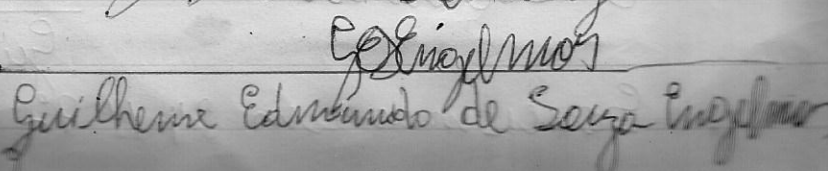 GESEngelmor
Guilherme Edmundo de Souza Engelmor